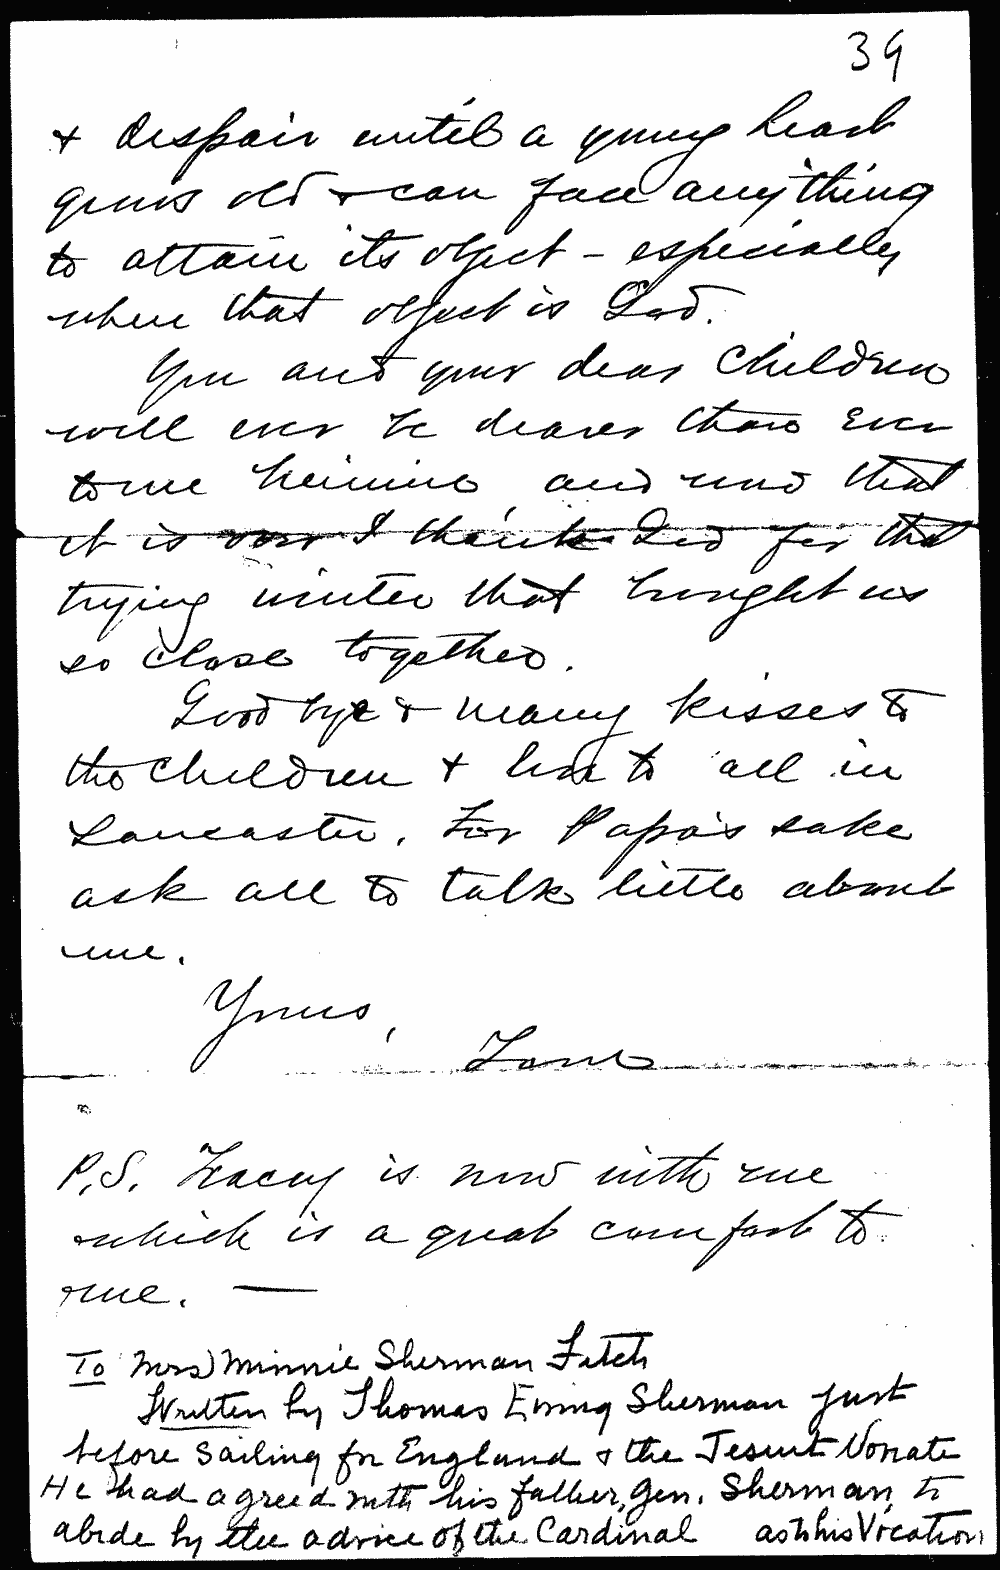 39
& despair until a young heart
grows old & can face anything
to attain its object – especially
where that object is God.
You and your dear children
will ever be dearer than ever
to me Minnie and now that
it is over I thank God for the
trying winter that brought us
so close together.
Good bye & many kisses to
the children & love to all in
Lancaster. For Papa's sake
ask all to talk little about
me.
Yours,
Tom
P.S. is now with me
which is a great comfort to
me. —
To Mrs Minnie Sherman Fitch
Written by Thomas Ewing Sherman just
before sailing for England & the Jesuit
He had agreed with his father, Gen. Sherman, to
abide by the advice of the Cardinal as to his Vocation